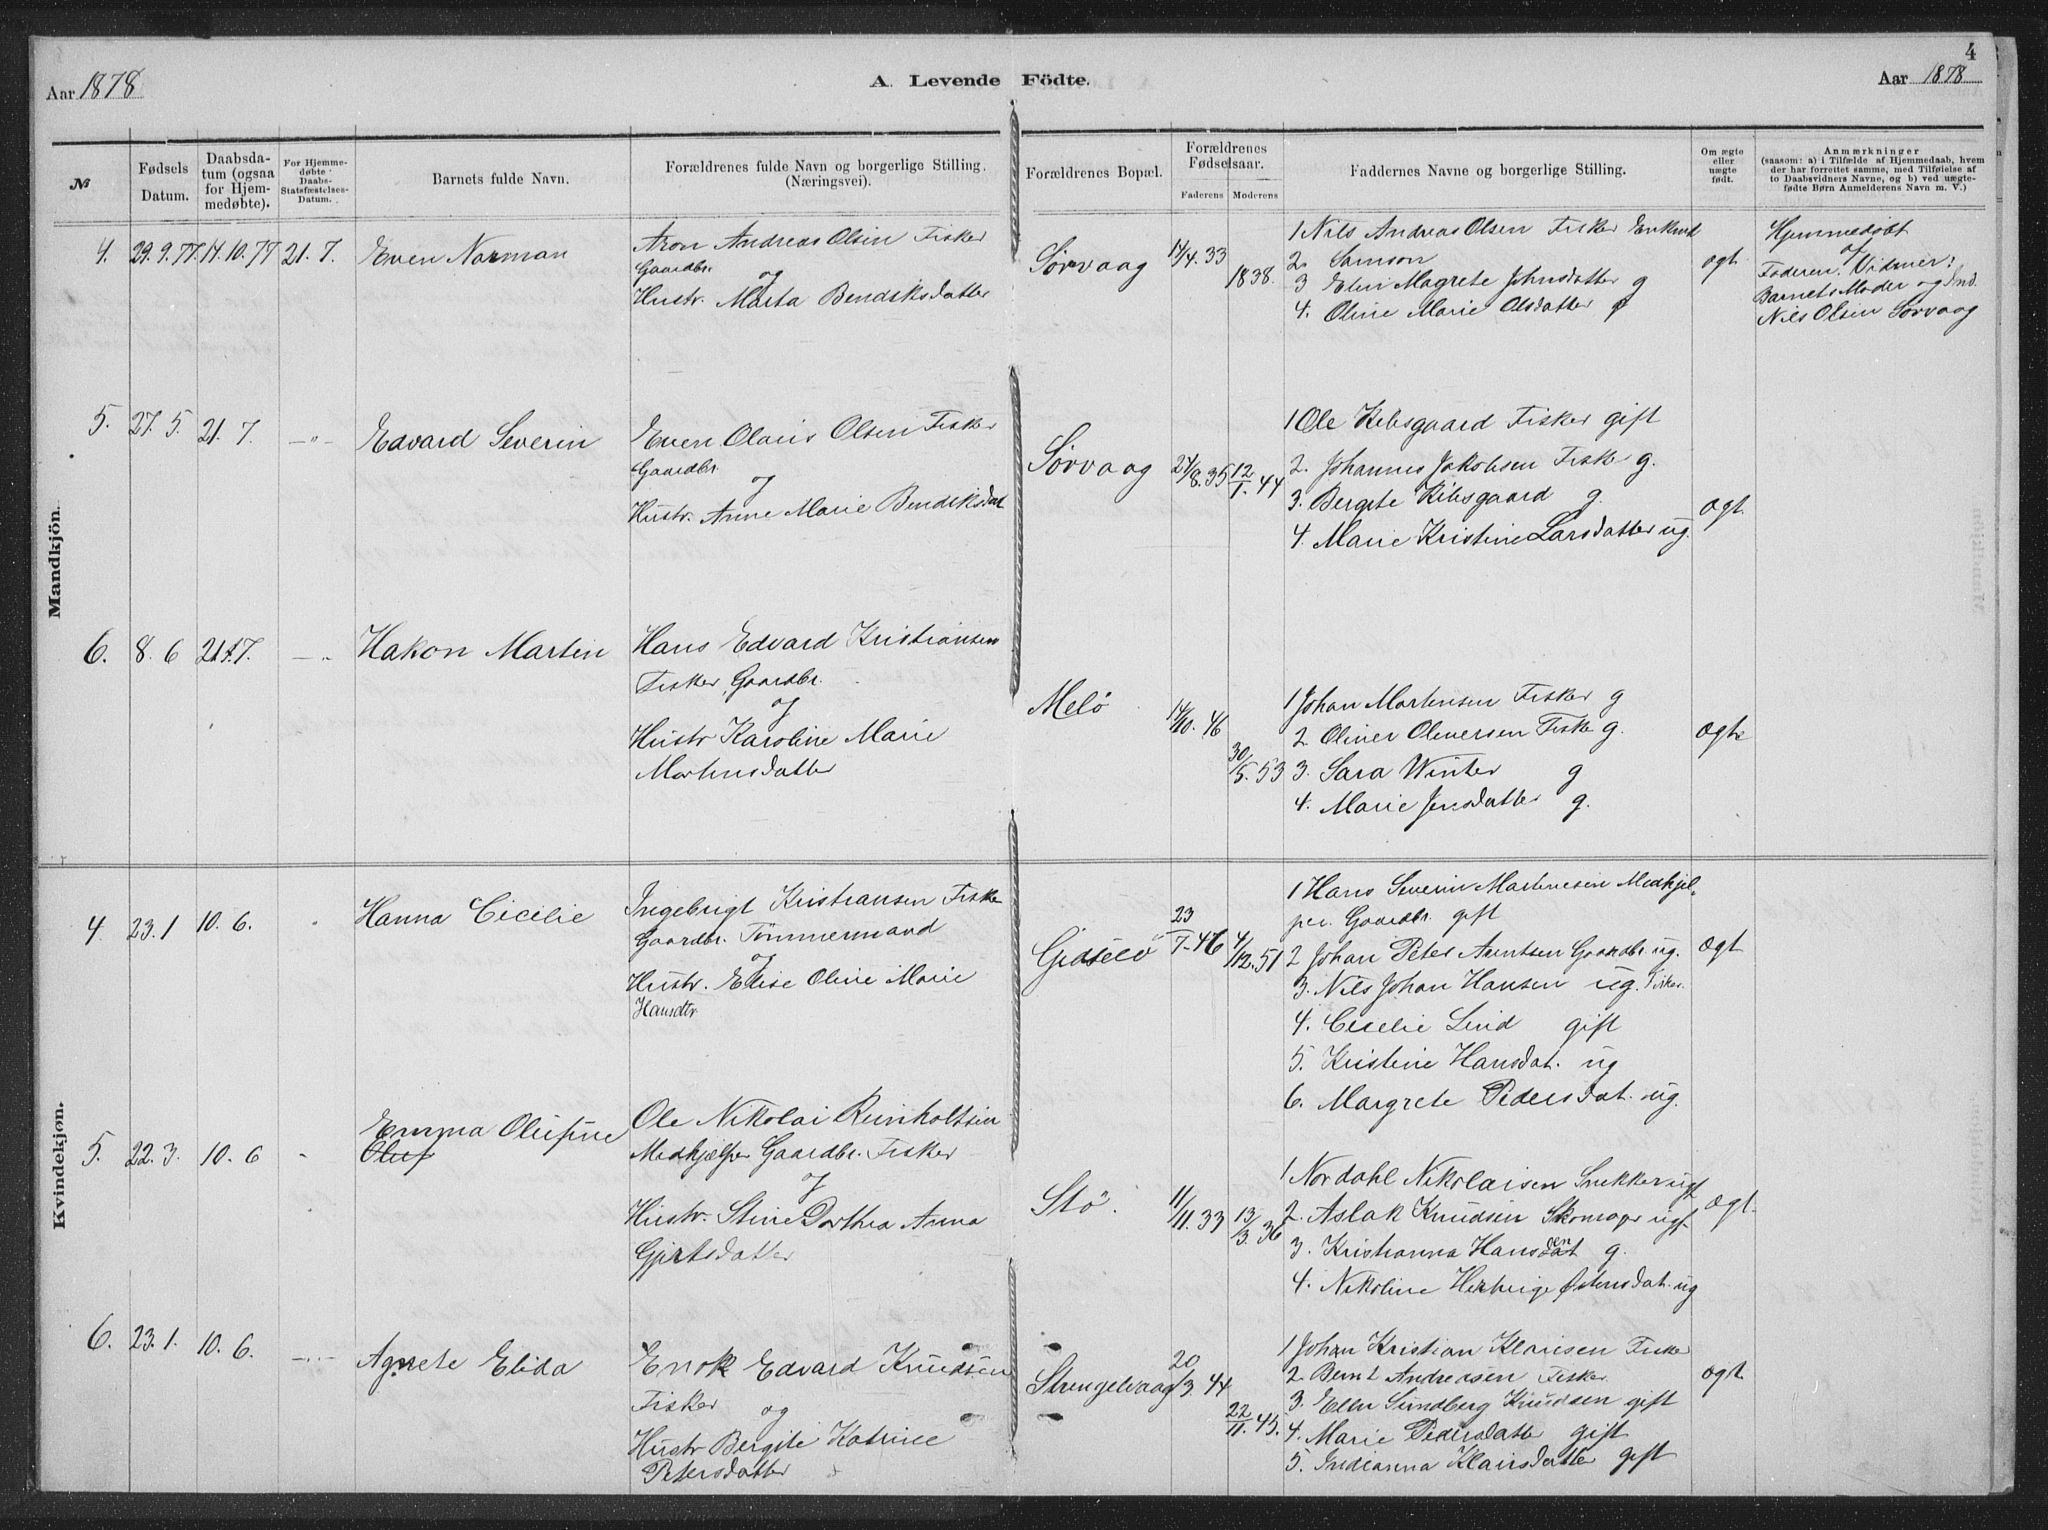 4
Aar 1878
A. Levende Födte.
Aar 1878
№
Fødsels Datum.
Daabsda-
tum (ogsaa
for Hjem-
medøbte).
For Hjemme-
døbte
Daabs-
Statsfæstelses-
Datum.
Barnets fulde Navn.
Forældrenes fulde Navn og borgerlige Stilling.
(Næringsvei).
Forældrenes Bopæl.
Forældrenes
Fødselsaar.
Faderens Moderens
Faddernes Navne og borgerlige Stilling.
Om ægte
eller
uægte
født.
Anmærkninger
(saasom: a) i Tilfælde af Hjemmedaab, hvem
der har forrettet samme, med Tilføielse af
to Daabsvidners Navne, og b) ved uægte-
fødte Børn Anmelderens Navn m. V.)
Mandkjön.
4. 29. 9. 77 14. 10. 77 21. 7. Even Norman
Aron Andreas Olsen Fisker
Gaardbr.
og
Hustr. Marta Bendiksdatter
Sørvaag
14/4. 33
1838.
1 Nils Andreas Olsen Fisker Enkmd
2. Samson
3 Elen Magrete Johnsdatter g
4. Oline Marie Olsdatter g
ægt
Hjemmedøbt
af
Faderen. Vidner:
Barnets Moder og Ind.
Nils Olsen Sørvaag
5. 27. 5. 21. 7. —"— Edvard Severin
Even Olaus Olsen Fisker
Gaardbr.
og
Hustr. Anne Marie Bendiksdat
Sørvaag
24/8. 35 12/1. 44
1 Ole Kibsgaard Fisker gift
2. Johannes Jakobsen Fiske g.
3. Bergete Kibsgaard g.
4. Marie Kristine Larsdatter ug.
ægt.
6. 8. 6 21. 7. —"— Hakon Martin
Hans Edvard Kristiansen
Fisker, Gaardbr.
og
Hustr Karoline Marie
Martensdatter
Melö
14/10. 46
30/5. 53
1 Johan Martensen Fisker g
2 Oliver Oliversen Fiske g.
3. Sara Winter g
4. Marie Jensdatter g.
ægte
Kvindekjøn.
4. 23. 1 10. 6. Hanna Cecilie
Ingebrigt Kristiansen Fiske
Gaardbr. Tömmermand
og
Hustr. Elise Oline Marie
Hansdtr
23/7. 46 4/12. 51
1 Hans Severin Martinesen Medhjel-
per. Gaardbr. gift
2 Johan Peter Arntsen Gaardbr. ug.
3. Nils Johan Hansen ug. Fisker.
4. Cecelie Lind gift
5. Kristine Hansdat. ug
6. Margrete Pedersdat. ug.
ægt
5. 22. 3. 10. 6 Emma Olufine
Oluf
Ole Nikolai Reinholtsen
Medhjælper Gaardbr. Fisker
og
Hustr. Stine Dorthea Anna
Gjertsdatter
Stö.
11/11. 33 13/3. 36
1 Nordahl Nikolaisen Snekker ugf
2. Aslak Knudsen Skomager ugf.
3. Kristianna Hansdat g.
4. Nikoline Østensdat. ug
ægt.
6. 23. 1. 10. 6. Agnete Elida
Enok Edvard Knudsen
Fisker og
Hustr Bergite Katrine
Petersdatter
Strengelvaag
20/3. 44
22/11. 45.
1 Johan Kristian Klausen Fisker
2. Bernt Andreasen Fisker.
3. Ellen Sundberg Knudsen gift
4. Marie Pedersdatter gift
5. Indianna Klausdatter gift
ægt